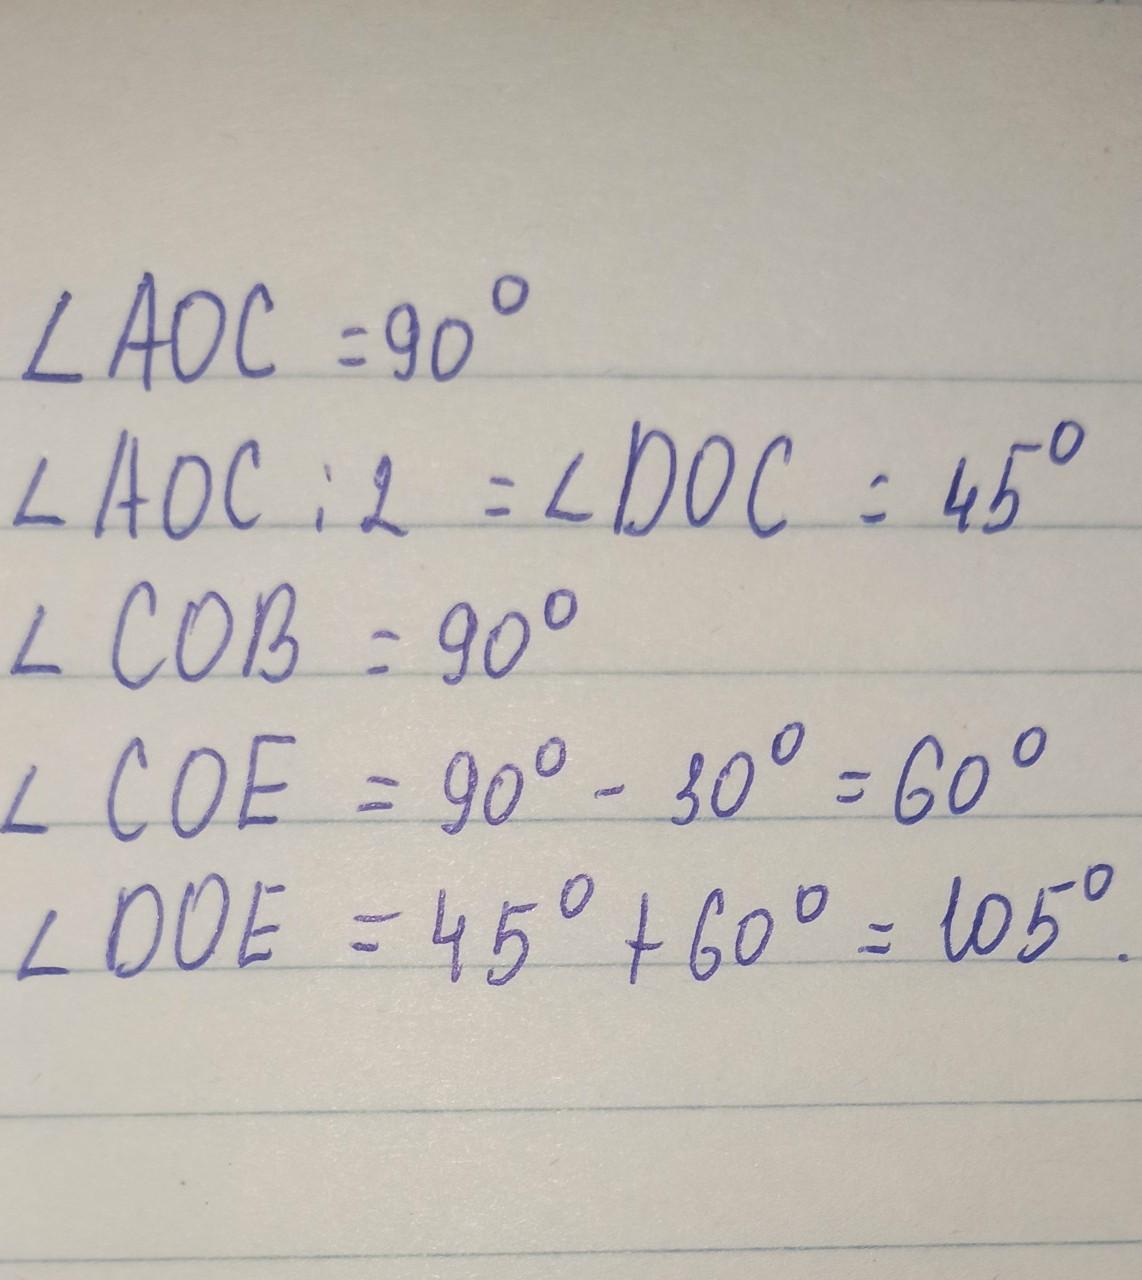 ∠AOC = 90°
∠AOC : 2 = ∠DOC = 45°
∠COB = 90°
∠COE = 90° - 30° = 60°
∠DOE = 45° + 60° = 105°.